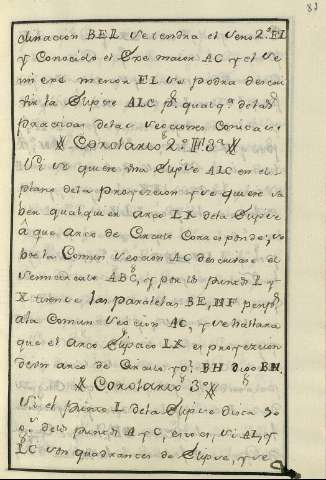 83
clinacion BEL se tendra el seno 2.º EI
y Conocido el Exe maior AC y el se
mi exe menor EI se podra descri
vir la Elipse ALC pr. qualqa. de las
practicas de las secciones Conicas.
Corolario 2.º F 3ª
Si se quiere una Elipse ALC en el
plano de la proyeccion y se quiere sa
ber qualquier arco LX de la Elipse
a que arco de Circulo Corresponde, so
bre la Comun seccion AC describase el
semicirculo ABC, y por los puntos L y
X tirense las paralelas BE, NF
a la Comun seccion AC, y se hallara
que el arco Eliptico LX es proyeccion
de un arco de Circulo BH digo BN.
Corolario 3º
Si el punto L de la Elipse dista 90
g.s de los puntos A y C, esto es, si AL, y
LC son quadrantes de Elipse, y se